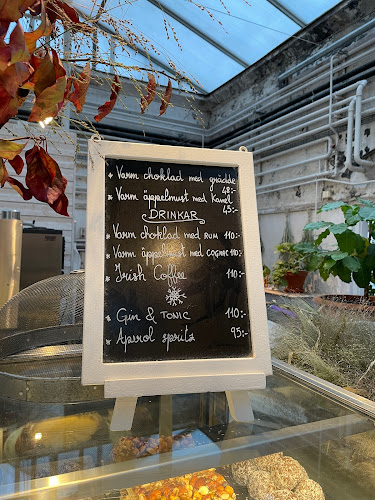 * Varm choklad med grädde 48:-
* Varm äppelmust med Kanel 45:-
DRINKAR
* Varm choklad med RUM 110:-
* Varm äppelmust med COGNAC 110:-
* Irish Coffee 110:-
* Gin & TONIC 110:-
* Aperol spritz 95:-